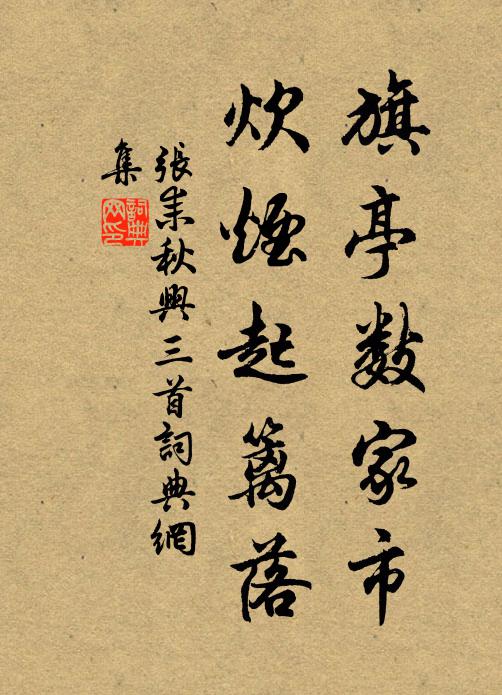 旗亭数家市
炊煙起籬落
張耒秋興三首詞典網
集
詞典
网印